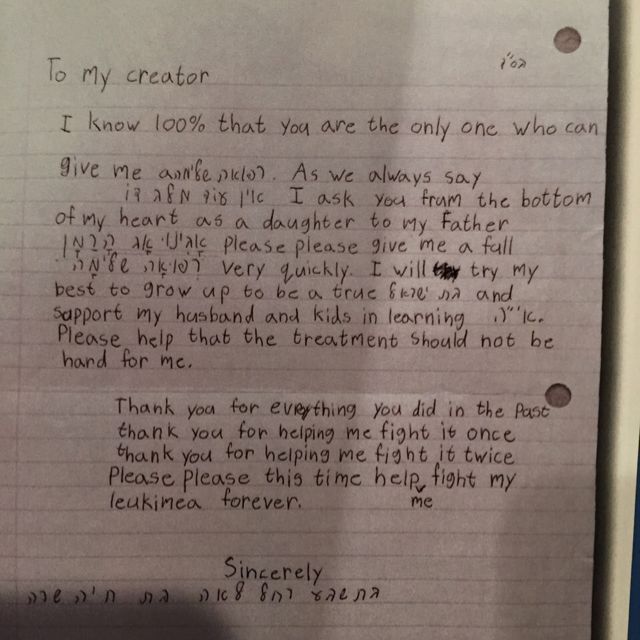 בס״ד
To my creator
I know 100% that you are the only one who can
give me רפואה שלימה. As we always say
אין עוד מלבדו I ask you from the bottom
of my heart as a daughter to my Father
אבינו אב הרחמן please please give me a full
רפואה שלימה very quickly. I will try my
best to grow up to be a true בת ישראל and
support my husband and kids in learning אי״ה.
Please help that the treatment should not be
hard for me.
Thank you for everything you did in the Past
thank you for helping me fight it once
thank you for helping me fight it twice
Please please this time help me fight my
leukimea forever.
Sincerely
בת שבע רחל לאה בת חיה שרה